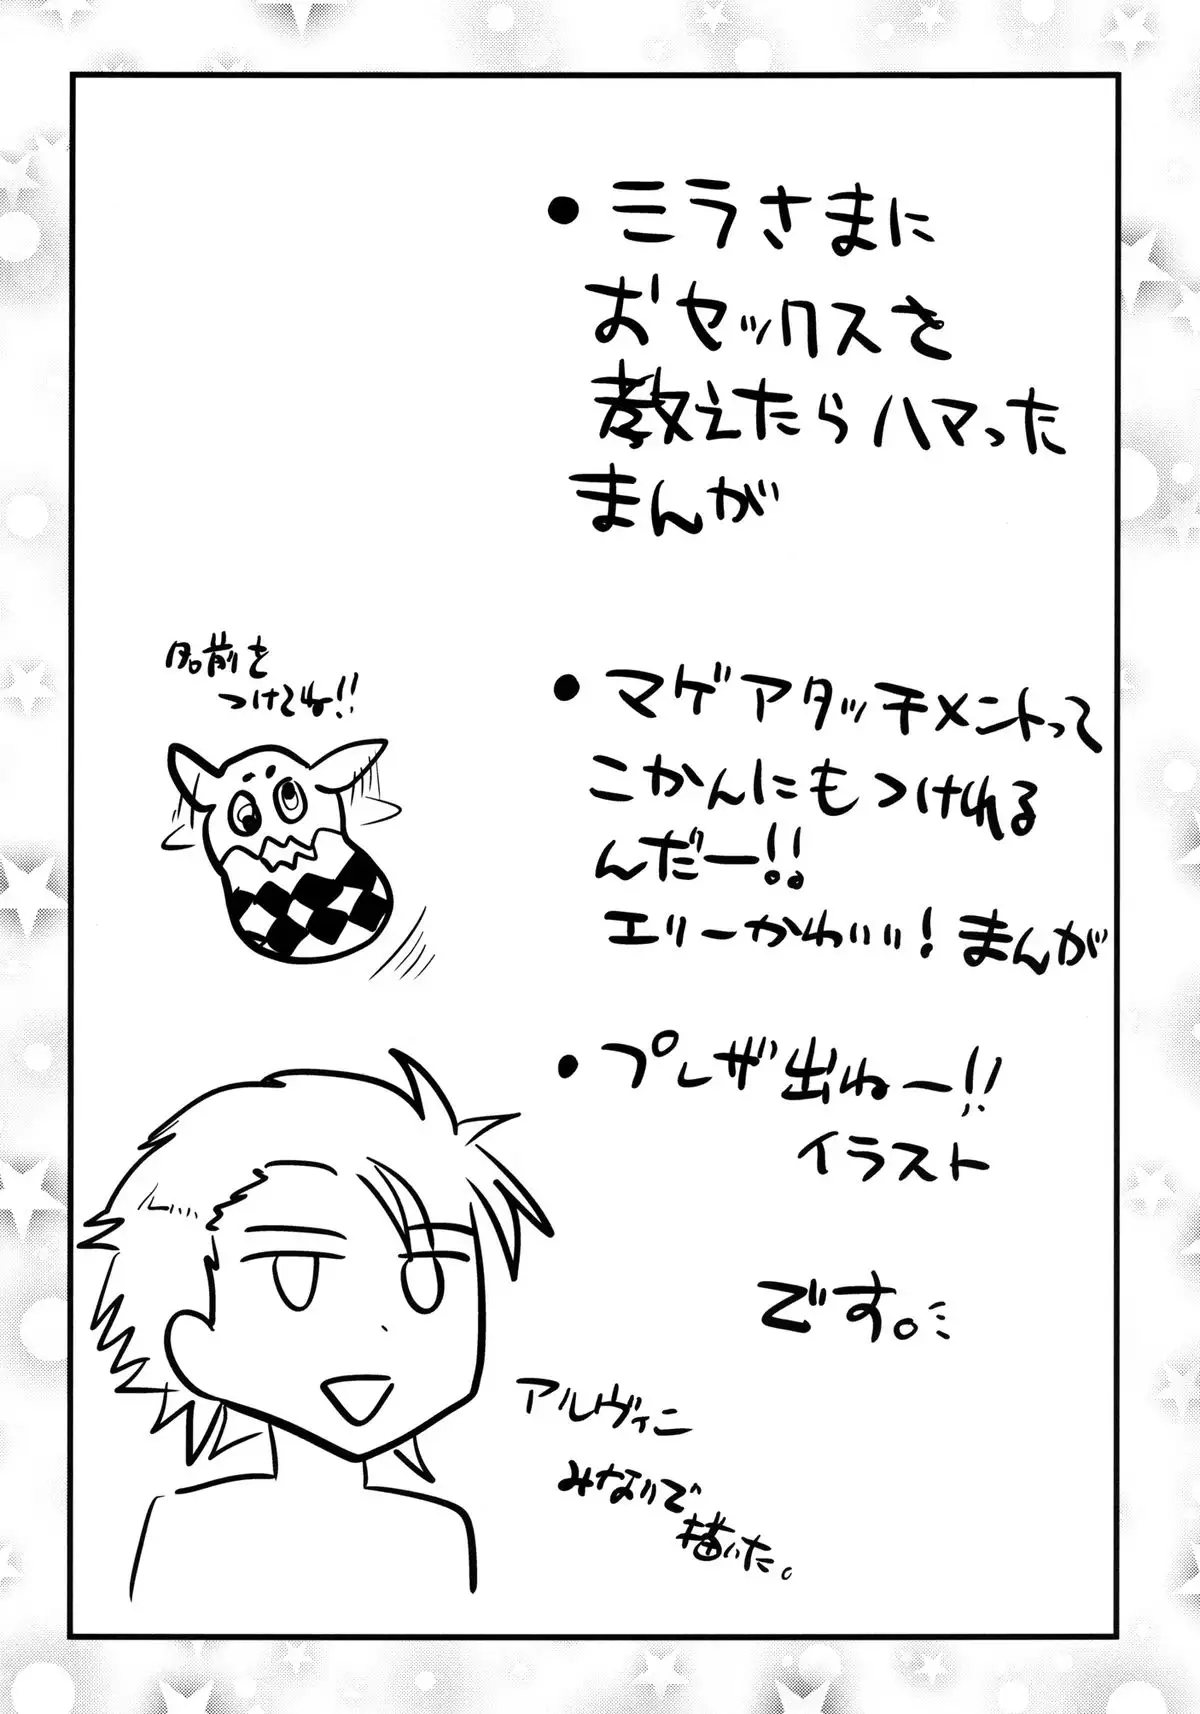 •ミラさまに
おセックスを
教えたらハマった
まんが
名前を
つけてね!!
•マゲアタッチメントって
こかんにもつけれる
んだー!!
エリーかわいい!まんが
•プレザ出ねー!!
イラスト
です。
アルヴィン
みなりで
描いた。